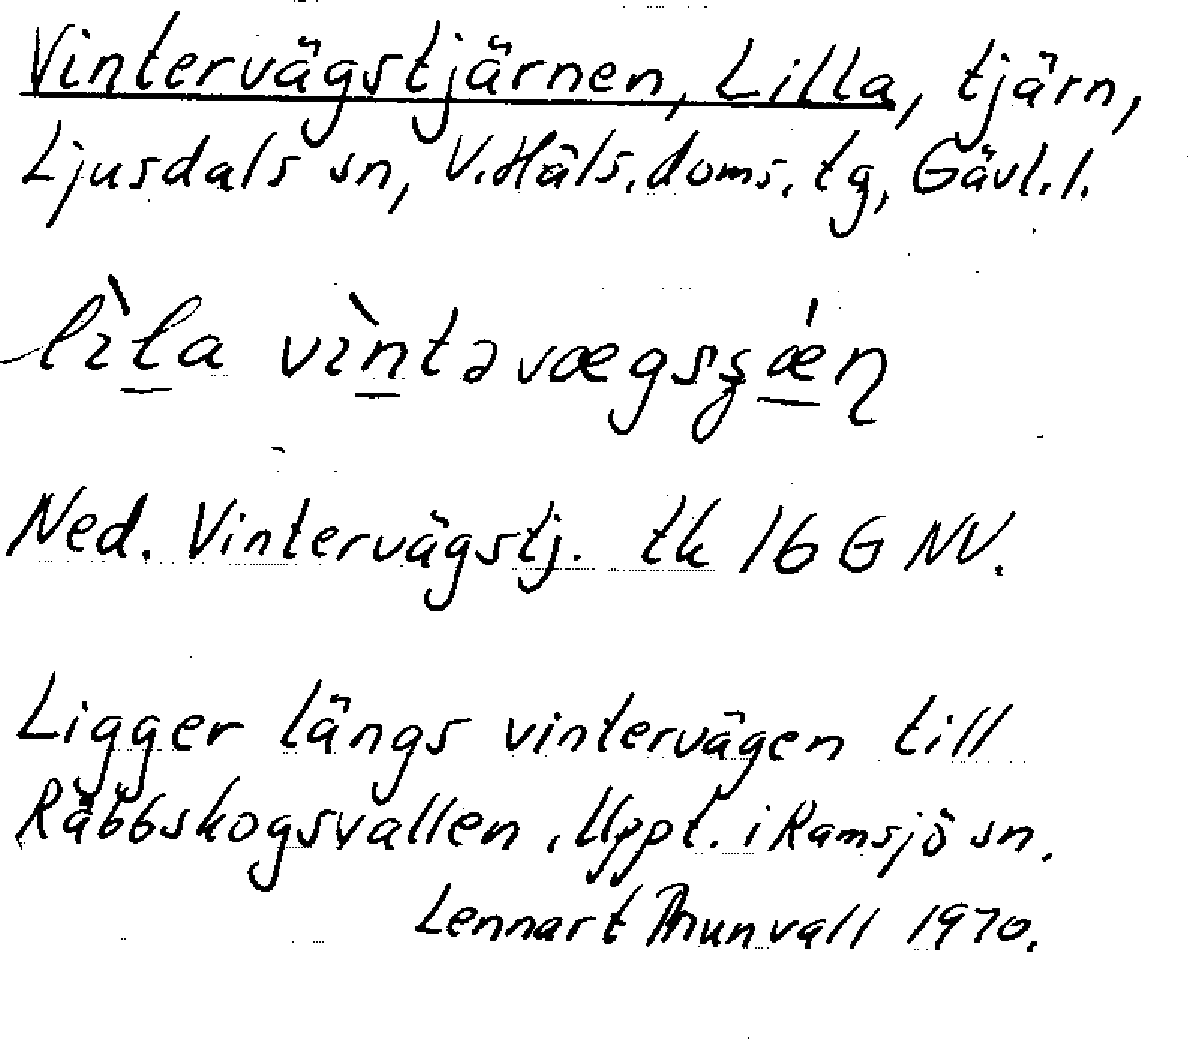 Vintervägstjärnen, Lilla, tjärn,
Ljusdals sn, V.Häls.doms.tg, Gävl.l.
lìla vìntəvægsʂǽɳ
Ned. Vintervägstj. tk 16 G NV.
Ligger längs vintervägen till
Räbbskogsvallen. Uppt. i Ramsjö sn.
Lennart 1970.